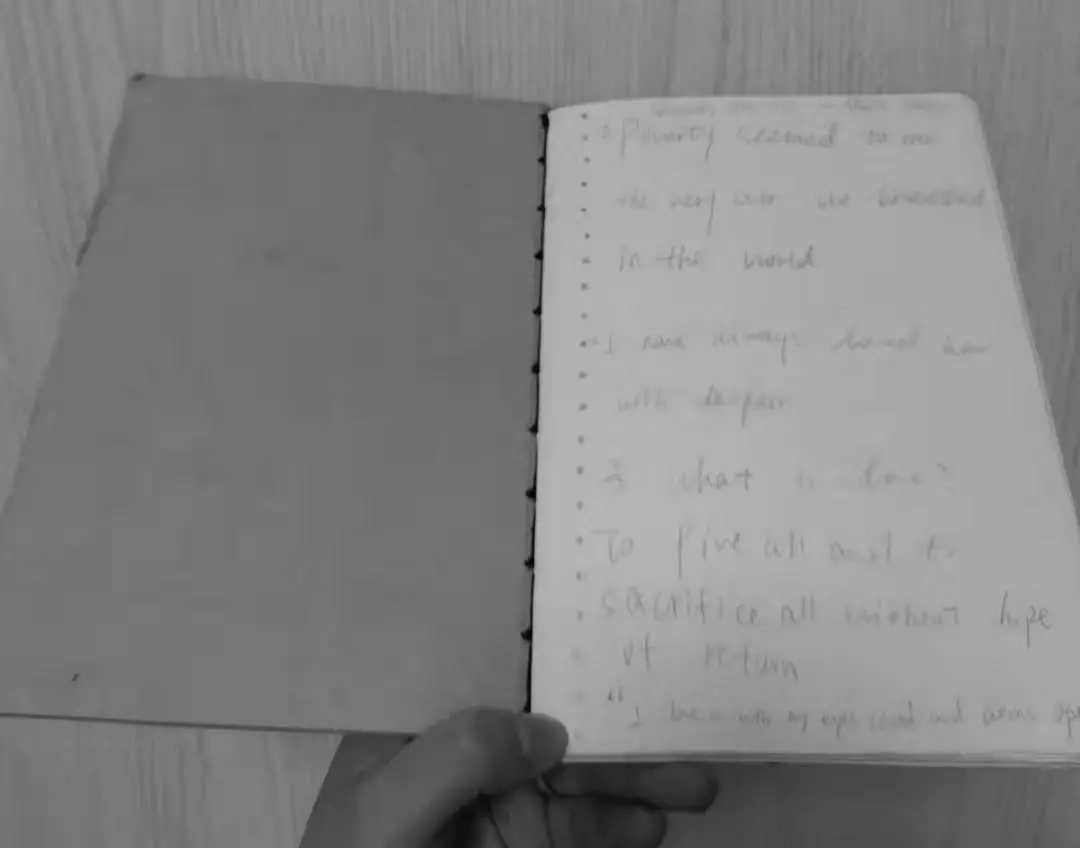 Poverty seemed to me
the very air we breathed
in this world
I have always loved
with despair
3 what is love?
To give all and to
sacrifice all without hope
of return
"I love with my eyes and arms ope